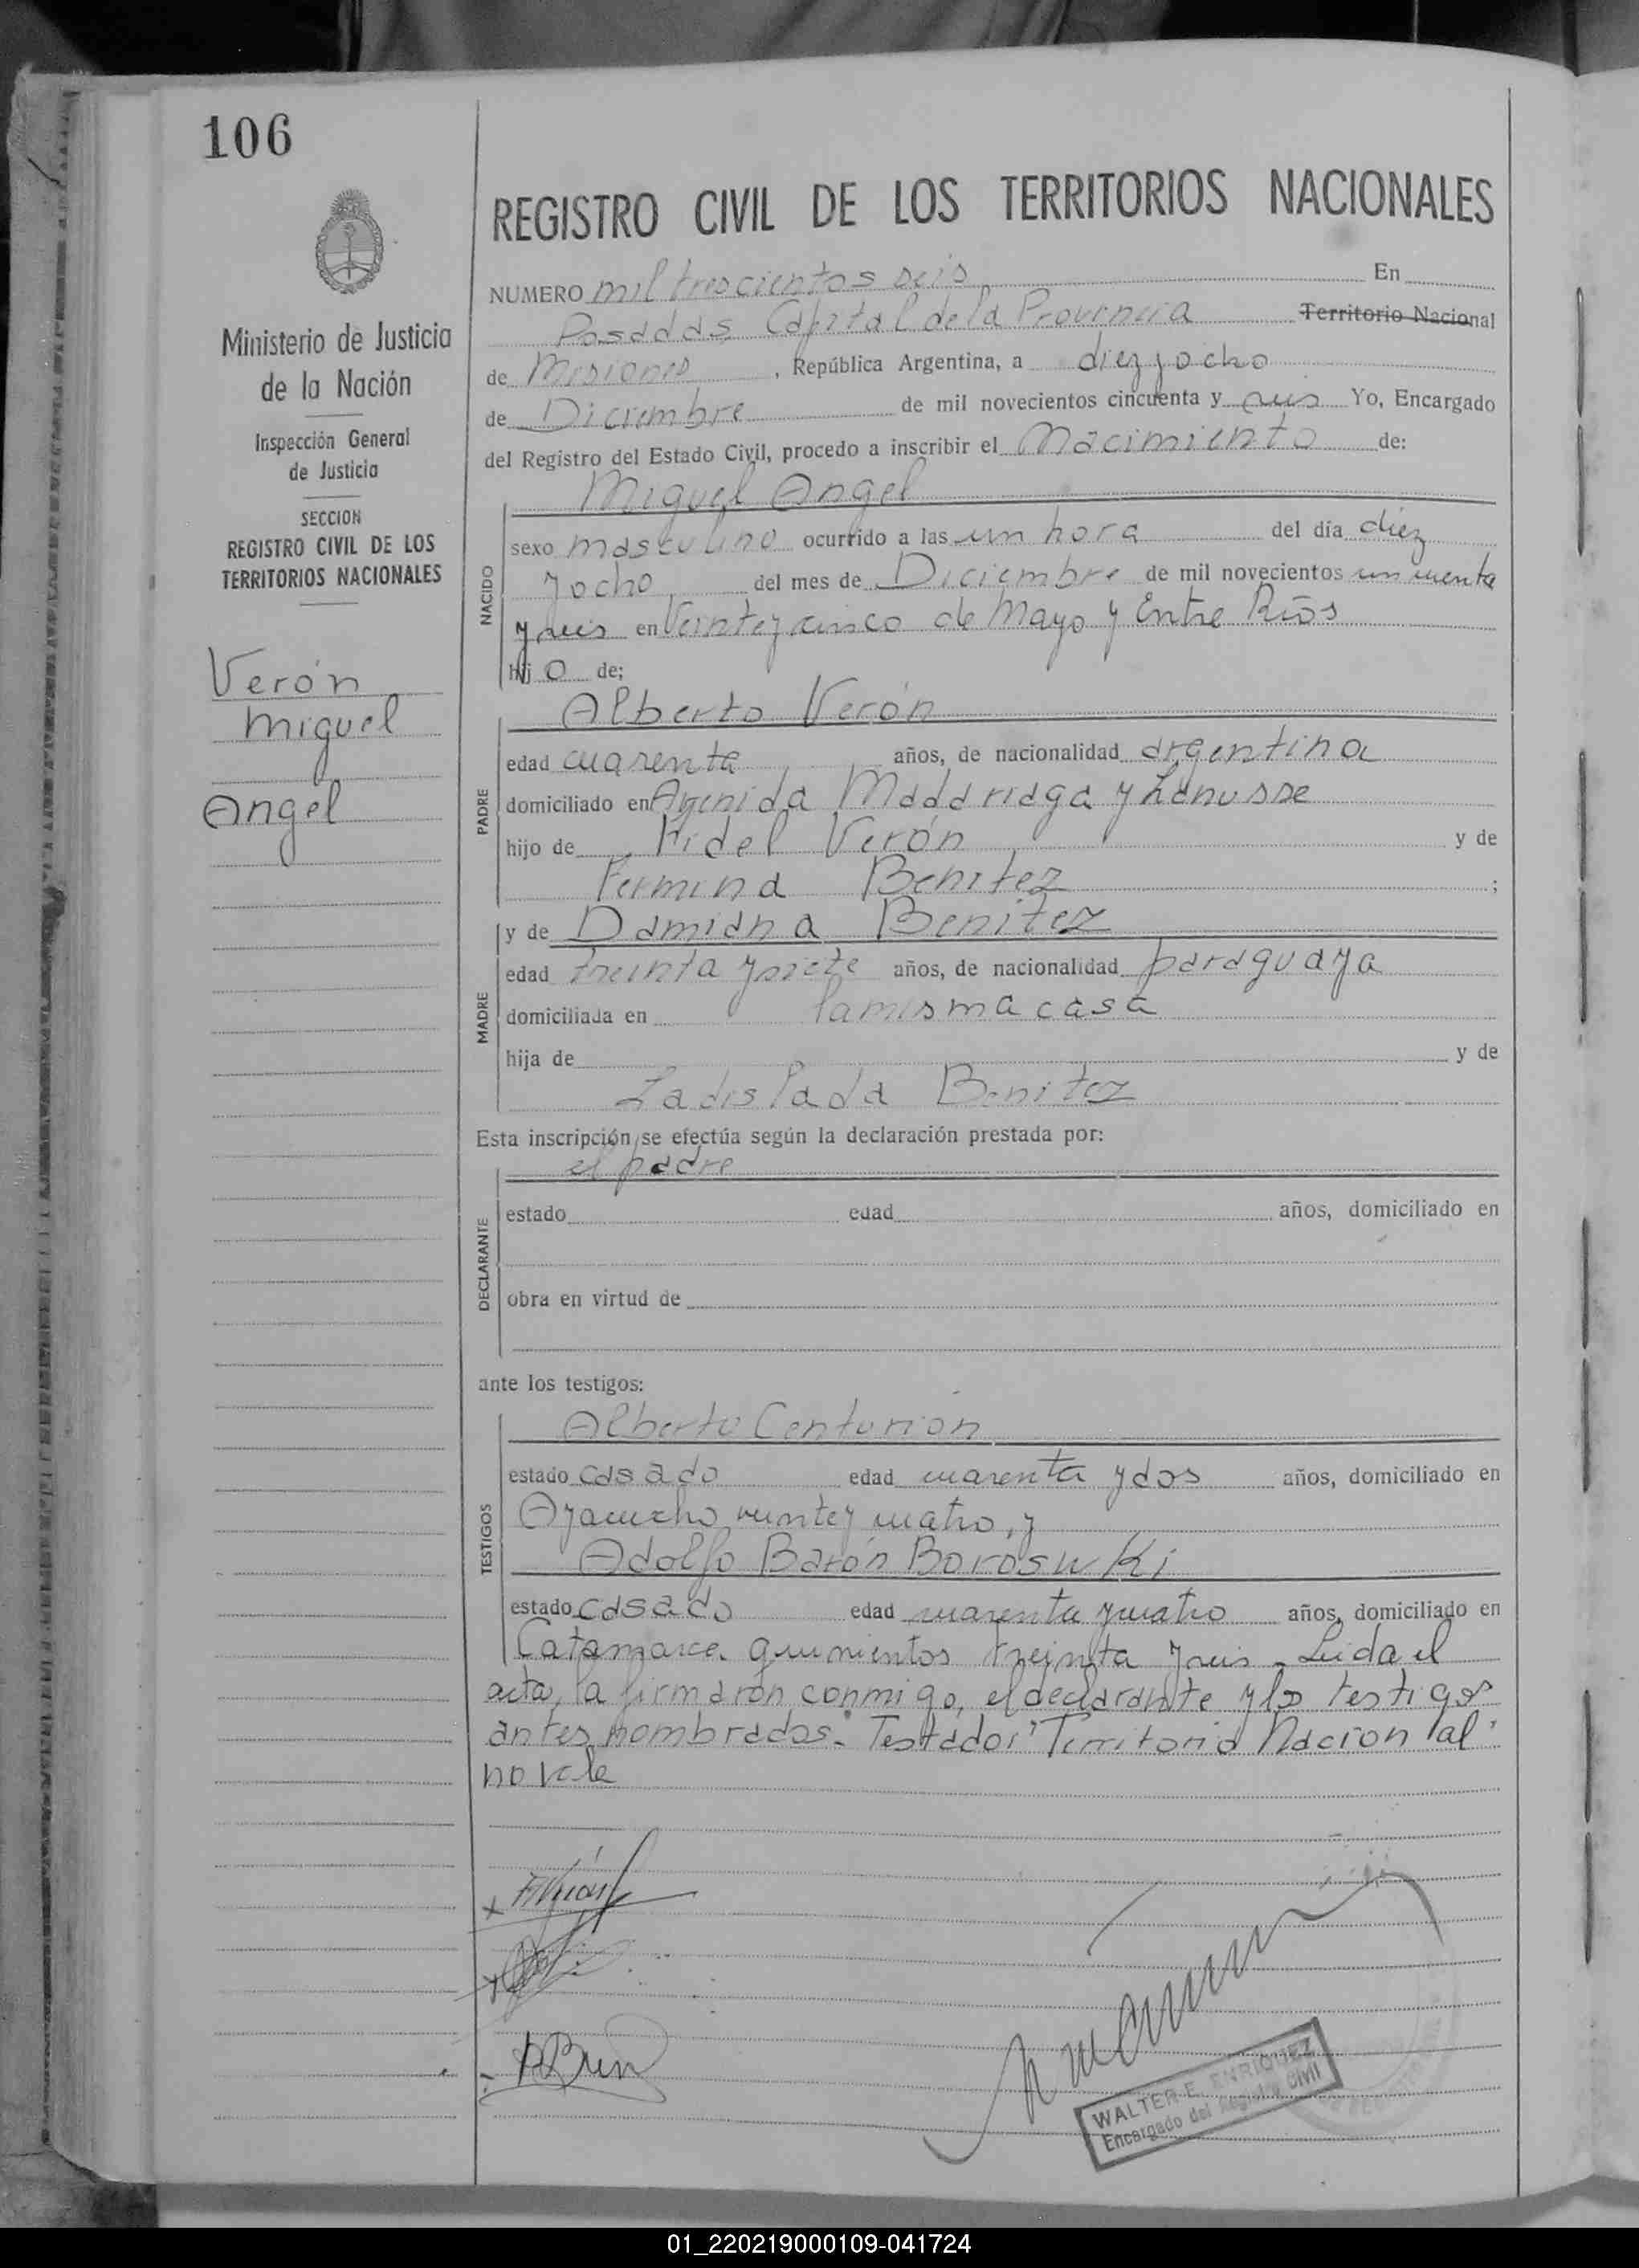 106
REGISTRO CIVIL DE LOS TERRITORIOS NACIONALES
Ministerio de Justicia
de la Nación
Inspección General
de Justicia
SECCION
REGISTRO CIVIL DE LOS
TERRITORIOS NACIONALES
Verón
Miguel
Angel
NUMERO mil trescientos seis En
Posadas, Capital de la Provincia Territorio Nacional
de Misiones, República Argentina, a diez y ocho
de Diciembre de mil novecientos cincuenta y seis Yo, Encargado
del Registro del Estado Civil, procedo a inscribir el Nacimiento de:
NACIDO
Miguel Angel
sexo masculino ocurrido a las un hora del día diez
y ocho del mes de Diciembre de mil novecientos cincuenta
y seis en Veinte y cinco de Mayo y Entre Ríos
hij o de;
PADRE
Alberto Verón
edad cuarenta años, de nacionalidad argentina
domiciliado en Avenida Madariaga y Lanusse
hijo de Fidel Verón y de
Fermina Benitez ;
MADRE
y de Damiana Benitez
edad treinta y siete años, de nacionalidad paraguaya
domiciliada en la misma casa
hija de y de
Ladislada Benitez
Esta inscripción se efectúa según la declaración prestada por:
DECLARANTE
el padre
estado edad años, domiciliado en
obra en virtud de
ante los testigos:
TESTIGOS
Alberto Centurion
estado casado edad cuarenta y dos años, domiciliado en
Ayacucho veinte y cuatro, y
Adolfo Barón Boroswki
estado casado edad cuarenta y cuatro años, domiciliado en
Catamarca quinientos treinta y seis - Leida el
acta, la firmaron conmigo, el declarante y los testigos
antes nombrados.- Testador "Territorio Nacional"
no vale
WALTER E. ENRIQUEZ
Encargado del Registro Civil
01_220219000109-041724